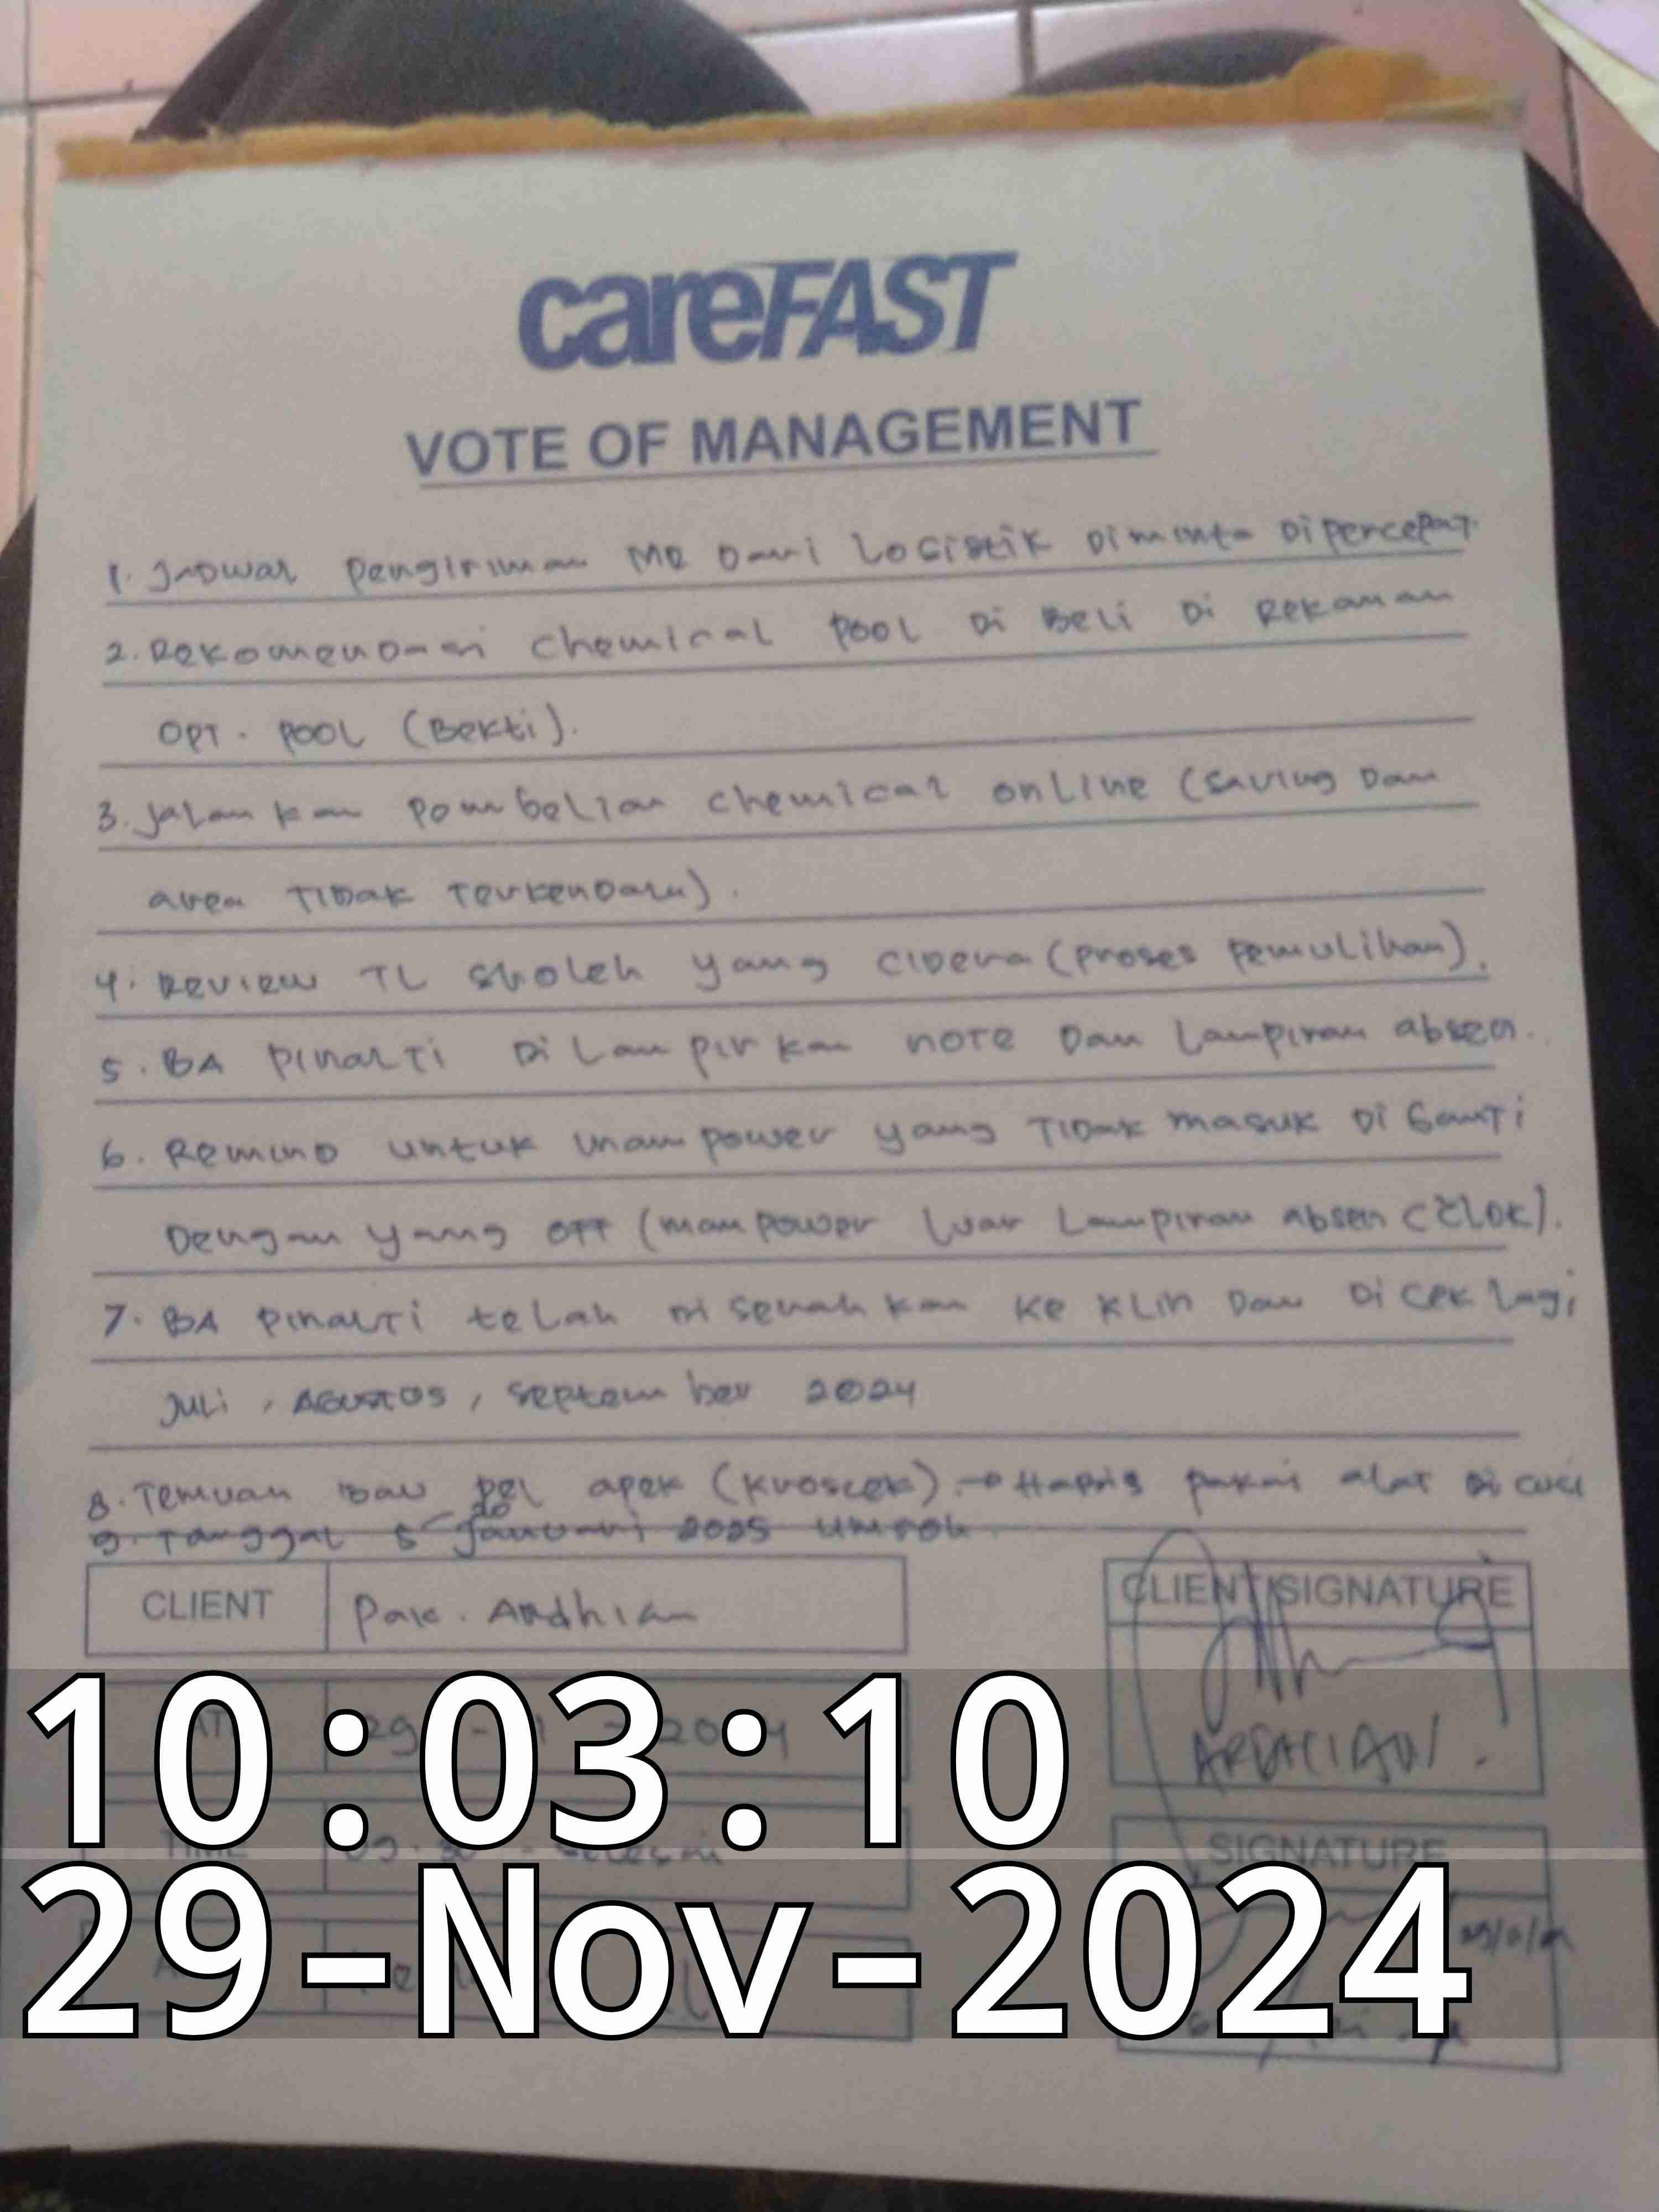 careFAST
VOTE OF MANAGEMENT
1. Jadwal pengiriman MR Dari Logistik Diminta Dipercepat.
2. Rekomendasi chemical pool Di Beli Di Rekanan
OPT. POOL (Bekti).
3. Jalankan pembelian chemical online (saving Dan
area TIDak Terkendala).
4. Review TL sholeh yang CIDera (proses pemulihan).
5. BA PinaLTi DiLampirkan note Dan Lampiran absen.
6. Remind untuk manpower yang TIDak masuk DiGanTi
Dengan yang OFF (manpower luar Lampiran absen
7. BA PinaLTi telah Diserahkan ke KLIN Dan Dicek lagi
Juli, AGustos, September 2024
8. Temuan Bau pel apek (kroscek). → Habis pakai alat Di cuci
9. Tanggal 5 - 20 Januari 2025 Umroh
CLIENT Pak. Ardhian
CLIENT SIGNATURE
ARDHIAN.
10:03:10
TIME
SIGNATURE
29-Nov-2024